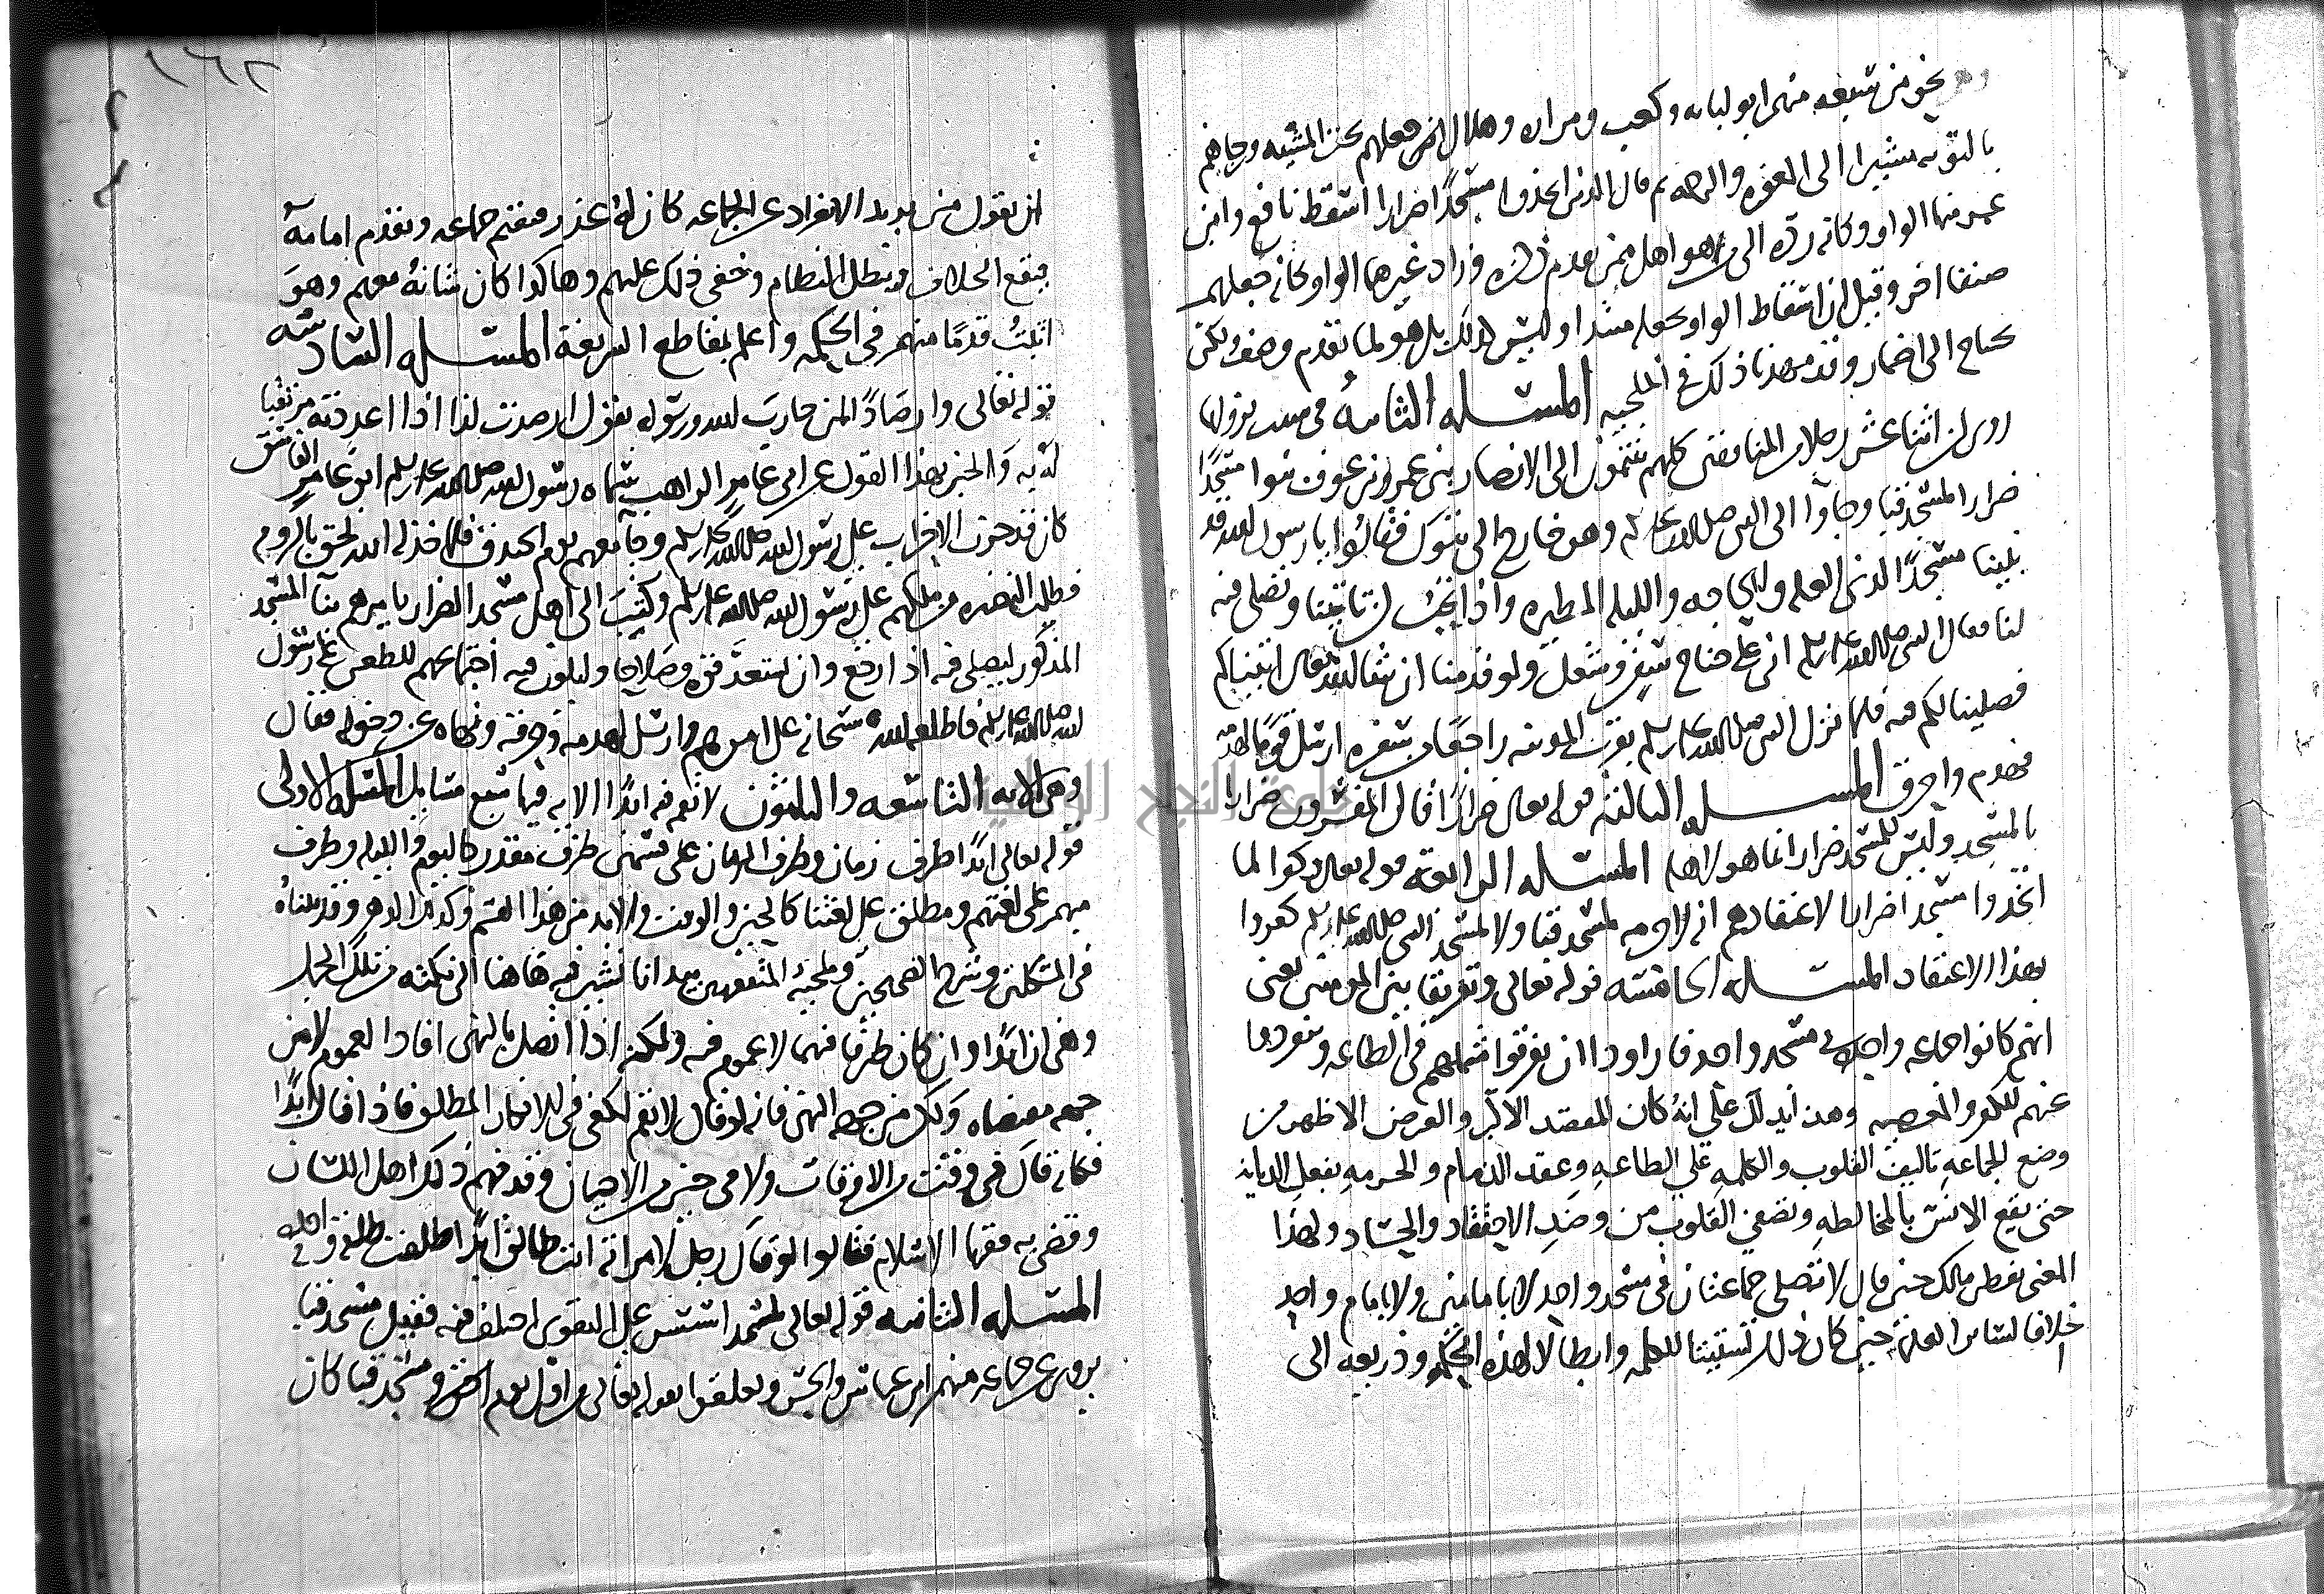 وهو نحو من سبعه منهم ابو لبابه وكعب ومراره وهلال اخر جعلهم تحت المشيه ورجاهم
بالتوبه مشيرا الى العفو والرحمه ثم قال الذين اتخذوا مسجدًا ضرارا اسقط نافع وابن
عمر منها الواو وكانه رده الى من هو اهل ممن تقدم ذكره وزاد غيرهما الواو كانه جعلهم
صنفا اخر وقيل ان اسقاط الواو بجعله مبتدا وليس كذلك بل هو لما تقدم وصف لكن
يحتاج الى اضمار وقد مهدنا ذلك في الملجيه المسله الثانيه في سبب نزولها
روى ان اثنا عشر رجلا من المنافقين كلهم ينتمون الى الانصار بنى عمرو بن عوف بنوا مسجدًا
ضرار المسجد قبا وجاوا الى النبي صلى الله عليه وسلم وهو خارج الى تبوك فقالوا يا رسول الله قد
بنينا مسجدًا لذى العله والحاجه والليله المطيره وانا نحب ان تاتينا وتصلى فيه
لنا فقال النبي صلى الله عليه وسلم انى على جناح سفر وشغل ولو قدمنا ان شا الله تعالى اتيناكم
فصلينا لكم فيه فلما نزل النبي صلى الله عليه وسلم بقرب المدينه راجعًا من سفره ارسل قومًا لهدمه
فهدم واحرق المسله الثالثه قوله تعالى ضرارًا قال المفسرون ضرارا
بالمسجد وليس للمسجد ضرار انما هو لاهله المسله الرابعه قوله تعالى وكفرا لما
اتخذوا مسجد اضرارا لاعتقادهم انه لا حرمه لمسجد قبا ولا لمسجد النبي صلى الله عليه وسلم كفروا
بهذا الاعتقاد المسله الخامسه قوله تعالى وتفريقا بين المومنين يعنى
انهم كانوا جماعه واحده في مسجد واحد فارادوا ان يفرقوا شملهم في الطاعه وينفردوا
عنهم للكفر والمعصيه وهذا يدلك على انه كان المقصد الاكبر والغرض الاظهر من
وضع الجماعه تاليف القلوب والكلمه على الطاعه وعقد الذمام والحرمه بفعل الديانه
حتى يقع الانس بالمخالطه وتصفي القلوب من وضر الاحقاد والحساد ولهذا
المعنى تفطن مالك حين قال لا تصلى جماعتان في مسجد واحد لا بامامين ولا بامام واحد
خلافا لساير العلما حين كان ذلك تشتيتا للكلمه وابطالا لهذه الحكمه وذريعه الى
١٦٢
ان نقول من يريد الانفراد عن الجماعه كان له عذر فيقيم جماعه ويقدم امامه
فيقع الخلاف ويبطل النظام وخفى ذلك عليهم وهاكذا كان شانه معهم وهو
اثبت قدمًا منهم في الحكمه واعلم بمقاطع الشريعة المسله السادسه
قوله تعالى وارصادًا لمن حارب الله ورسوله يقول ارصدت لذا اذا اعددته مرتقبا
له به والخبر بهذا القول عن ابى عامر الراهب سماه رسول الله صلى الله عليه وسلم ابو عامر الفاسق
كان قد حزب الاحزاب على رسول الله صلى الله عليه وسلم وجا معهم يوم الخندق فلما خذله الله لحق بالروم
فطلب النصره من ملكهم على رسول الله صلى الله عليه وسلم وكتب الى اهل مسجد الضرار يامرهم ببنا المسجد
المذكور ليصلى فيه اذا رجع وان يستعد قوه وسلاحا وليكون فيه اجتماعهم للطعن على رسول
الله صلى الله عليه وسلم فاطلع الله سبحانه على امرهم وارسل لهدمه وحرقه ونهاه عن دخوله فقال
وهى الايه التاسعه والثلثون لا تقم فيه ابدًا الايه فيها سبع مسايل المسله الاولى
قوله تعالى ابدًا ظرف زمان وظرف الزمان على قسمين ظرف مقدر كاليوم والليله وظرف
مبهم على لغتهم ومطلق على لغتنا كالحين والوقت والابد من هذا القسم وكذلك الدهر وقد بيناه
في المشكلين وشرح الصحيحين وملجيه المتفقهين بيد انا نشير فيه هاهنا الى نكته من تلك الجمل
وهى ان ابدًا وان كان ظرفا مبهما لا عموم فيه ولكنه اذا اتصل بالنهى افاد العموم لا من
جهه مقتضاه ولكن من جهه النهى فانه لو قال لا تقم لكفى في الانكار المطلق فاذا قال ابدًا
فكانه قال في وقت من الاوقات ولا في حين من الاحيان وقد فهم ذلك اهل اللسان
وقضى به فقها الاسلام فقالوا لو قال رجل لامراته انت طالق ابدًا طلقت طلقه واحده
المسله الثانيه قوله تعالى لمسجد اسس على التقوى اختلف فيه فقيل مسجد قبا
يروى عن جماعه منهم ابن عباس والحسن وتعلقوا بقوله تعالى من اول يوم ومسجد قبا كان